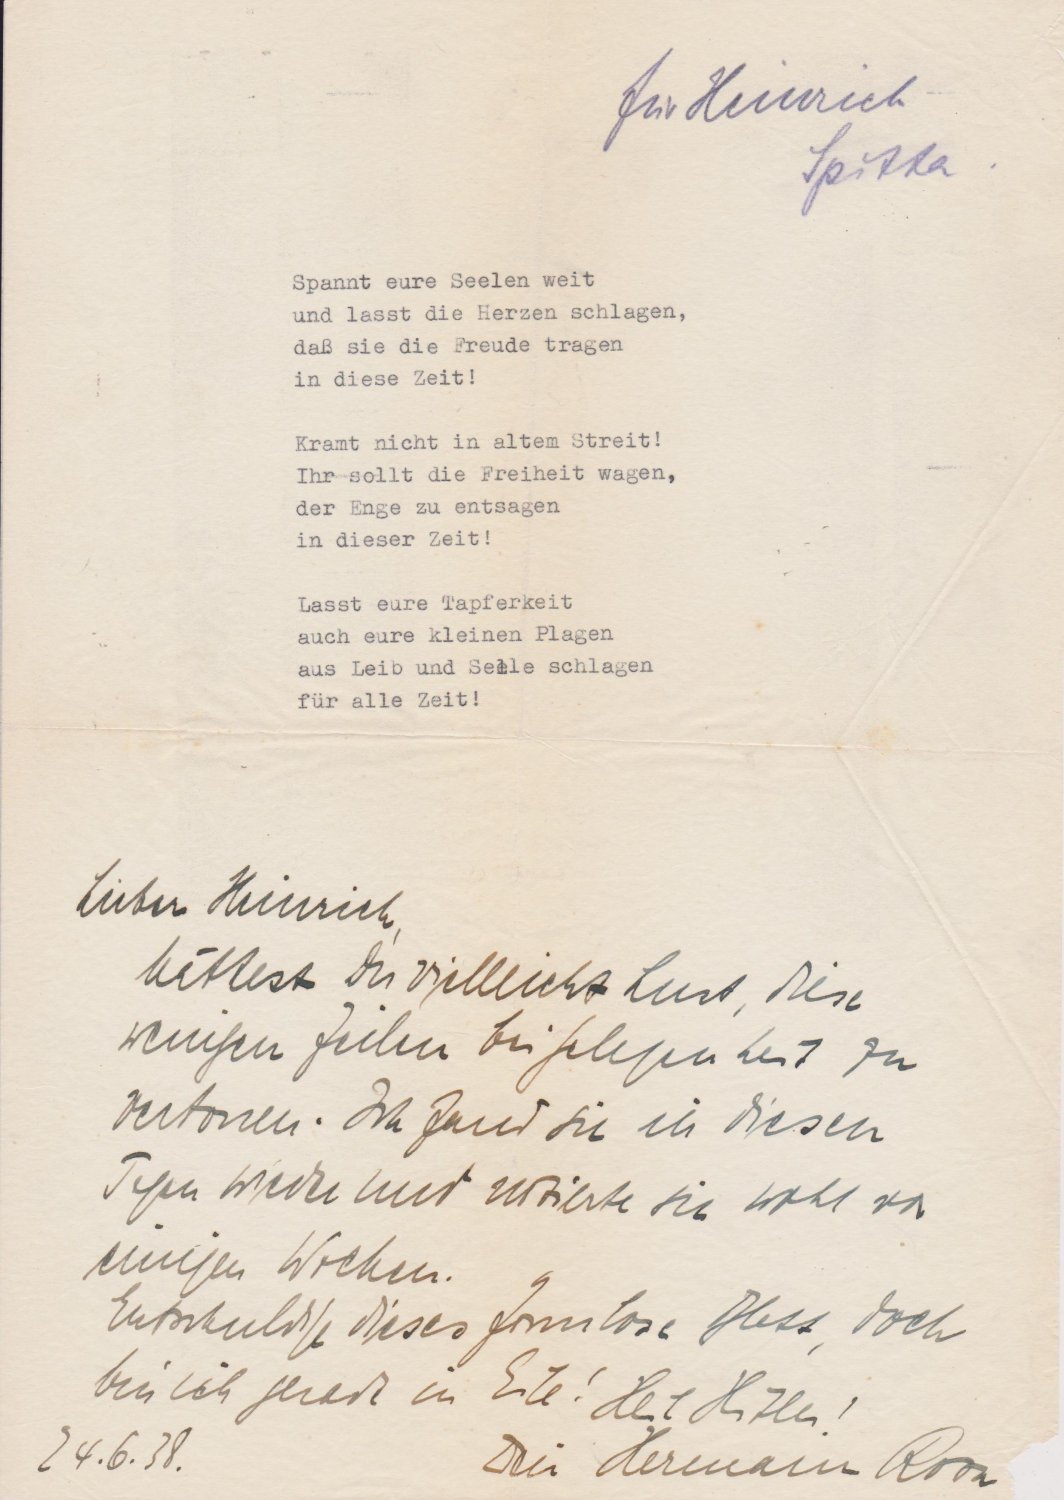 für Heinrich
Spitta.
Spannt eure Seelen weit
und lasst die Herzen schlagen,
daß sie die Freude tragen
in diese Zeit!
Kramt nicht in altem Streit!
Ihr sollt die Freiheit wagen,
der Enge zu entsagen
in dieser Zeit!
Lasst eure Tapferkeit
auch eure kleinen Plagen
aus Leib und Seele schlagen
für alle Zeit!
Lieber Heinrich,
hättest Du vielleicht Lust, diese
wenigen Zeilen bei Gelegenheit zu
vertonen. Ich fand sie in diesen
Tagen wieder und notierte sie wohl vor
einigen Wochen.
Entschuldige dieses formlose Blatt, doch
bin ich gerade in Eile! Heil Hitler!
24.6.38. Dein Hermann Roon